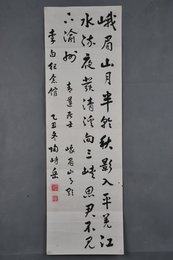 峨眉山月半轮秋影入平羌江
水流夜發清溪向三峽思君不见
下渝州
青蓮居士 峨眉山月歌
李白纪念馆 乙丑冬